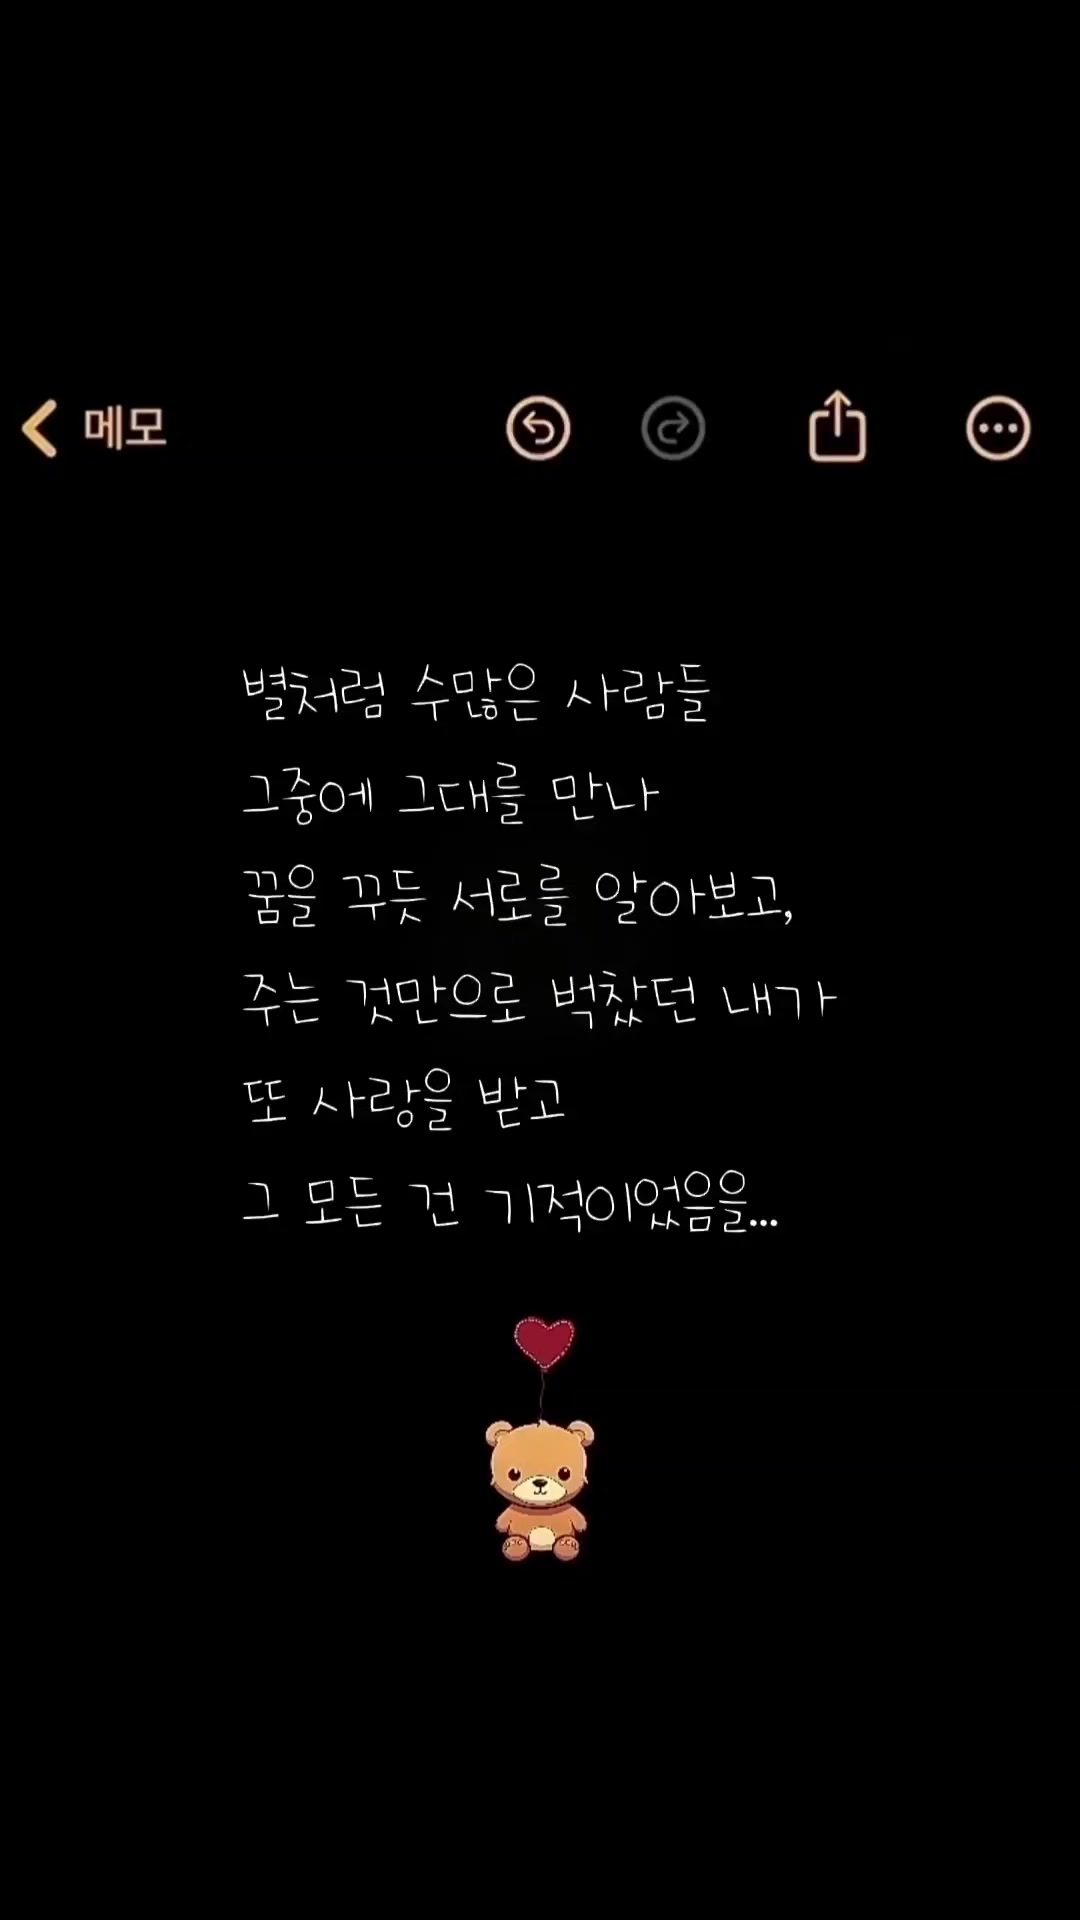 메모
별처럼 수많은 사람들
그중에 그대를 만나
꿈을 꾸듯 서로를 알아보고,
주는 것만으로 벅찼던 내가
또 사랑을 받고
그 모든 건 기적이었음을...